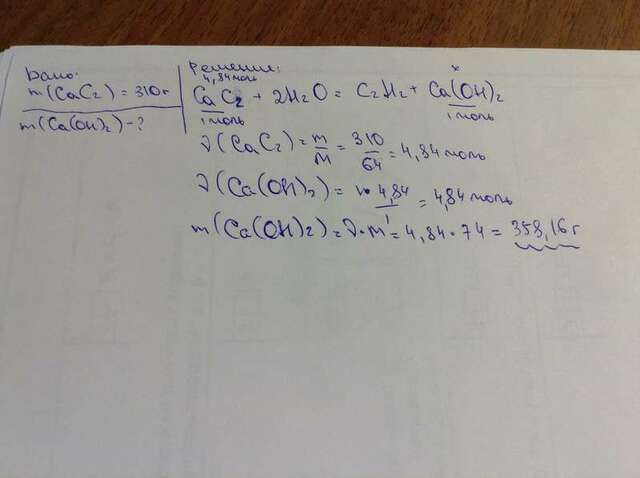 Дано:
m(CaC2) = 310г
m(Ca(OH)2) - ?
Решение:
4,84 моль
x
CaC2 + 2H2O = C2H2 + Ca(OH)2
1 моль
1 моль
ν(CaC2) = m/M = 310/64 = 4,84 моль
ν(Ca(OH)2) = 1·4,84/1 = 4,84 моль
m(Ca(OH)2) = ν·M = 4,84·74 = 358,16 г